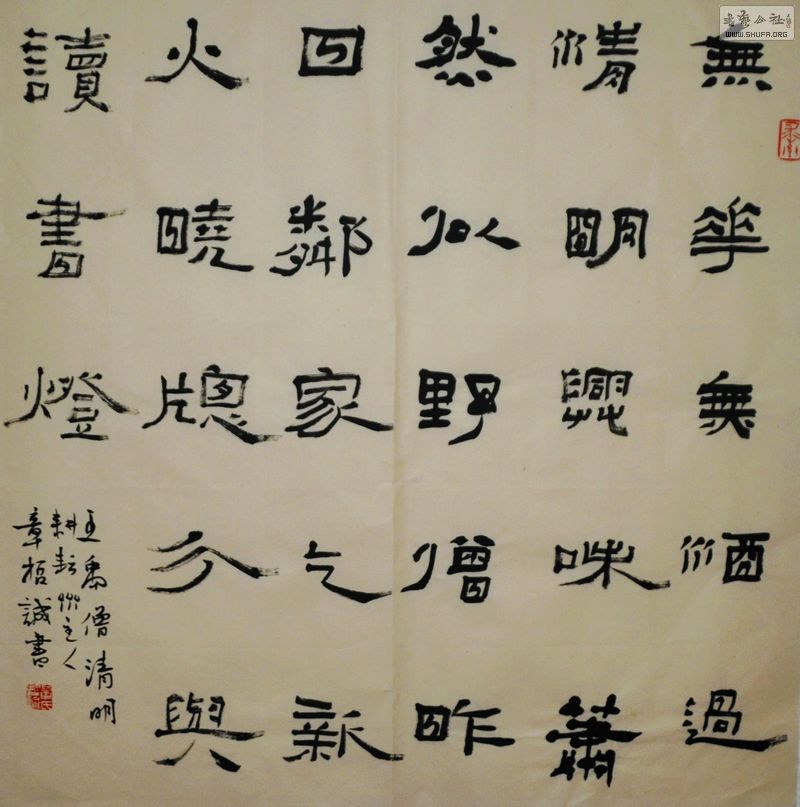 無花無酒過
清明興味蕭
然似野僧昨
日鄰家乞新
火曉牕分與
讀書燈
王禹僧清明
耕耘主人
章哲誠書
书艺公社
WWW.SHUFA.ORG